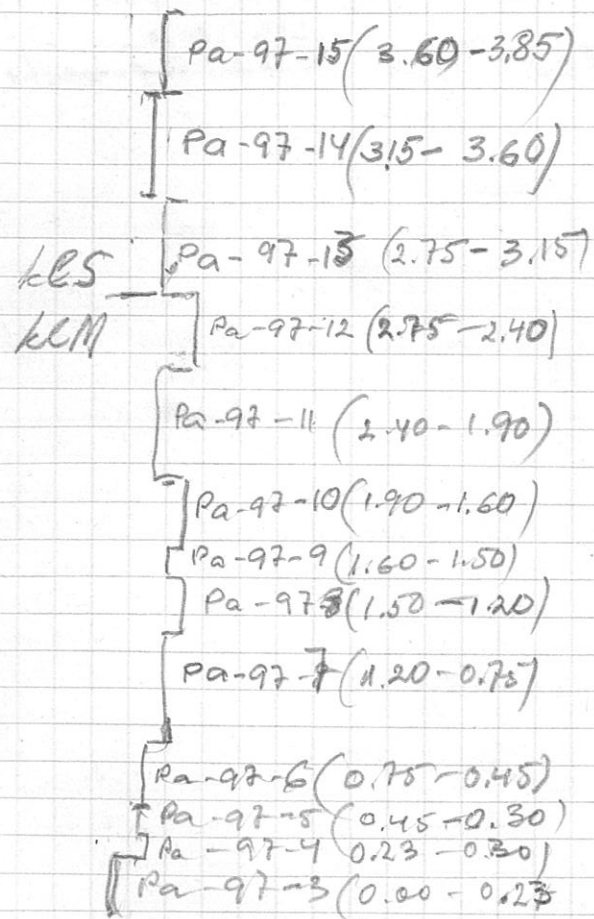 Pa-97-15(3.60-3.85)
Pa-97-14(3.15- 3.60)
Pa-97-13 (2.75-3.15)
Pa-97-12 (2.75-2.40)
Pa-97-11 (2.40-1.90)
Pa-97-10(1.90-1.60)
Pa-97-9(1.60-1.50)
Pa-97-8(1.50-1.20)
Pa-97-7(1.20-0.75)
Pa-97-6(0.75-0.45)
Pa-97-5(0.45-0.30)
Pa-97-4 0.23-0.30)
Pa-97-3(0.00-0.23